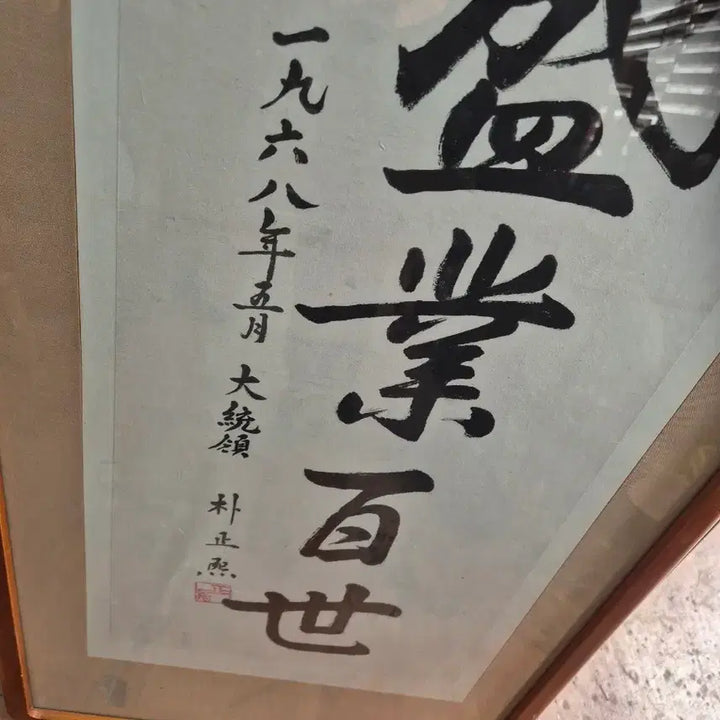 盛業百世
一九六八年五月 大統領 朴正熙